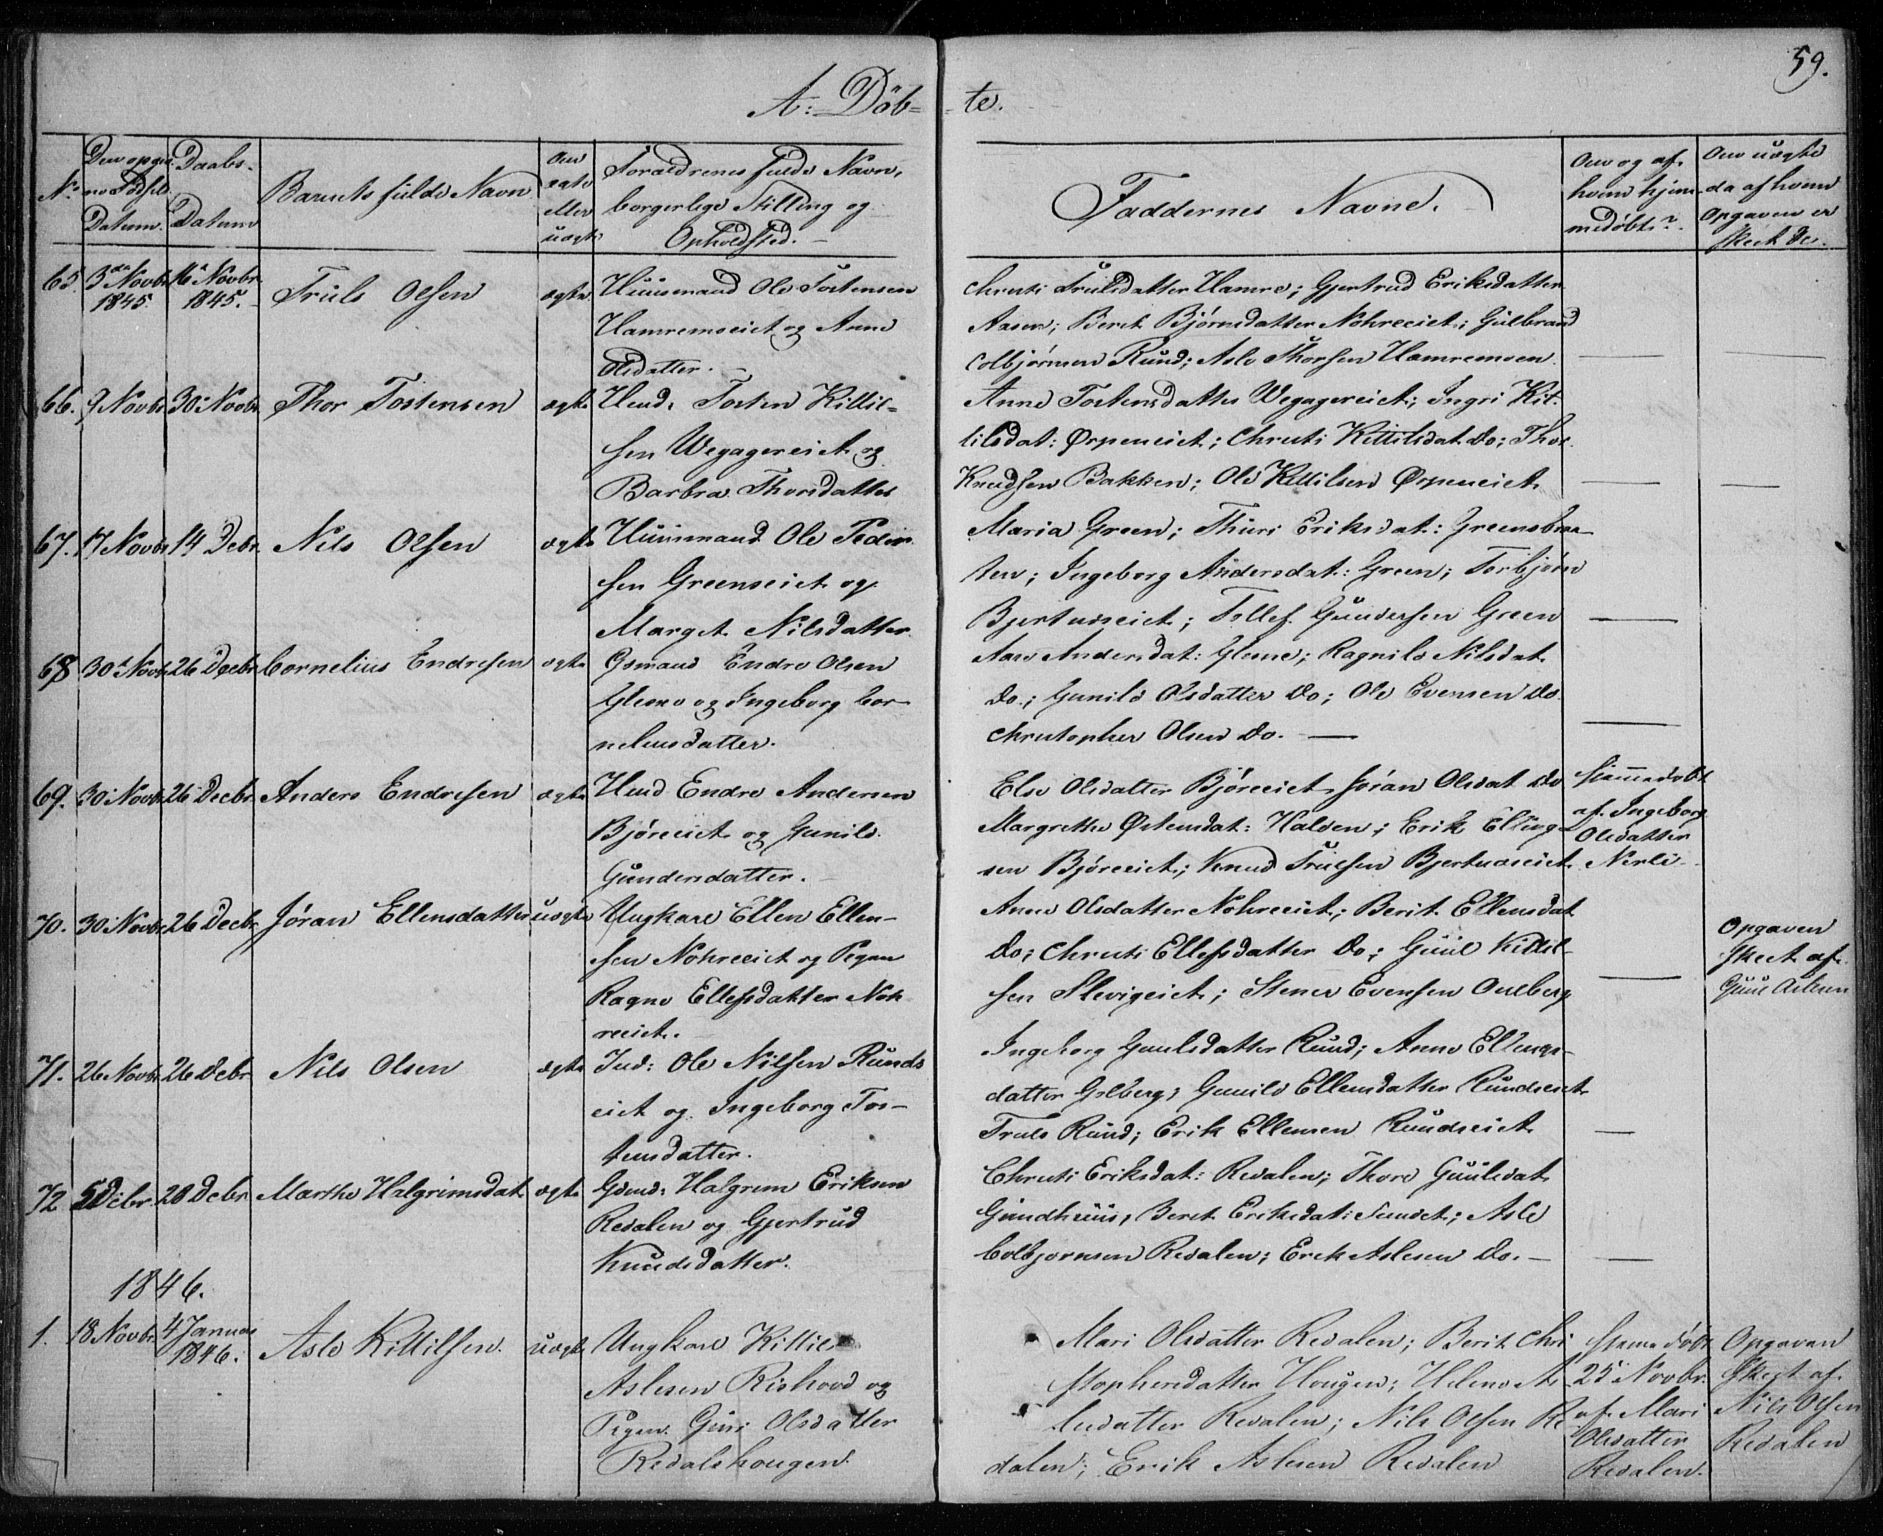 59.
A: Döb- te.
N. Den opgivne Födsels Datum. Daabs-Datum Barnets fulde Navn Om ægte eller uægte Forældrenes fulde Navn, borgerlige Stilling og Opholdsted. Faddernes Navne. Om og af hvem hjemmedöbt? Om uægte da af hvem Opgaven er skeet &c.
65. 3die Novbr 1845. 16 Novbr 1845. Truls Olsen ægte Huusmand Ole Tostensen
Hamremoeiet og Anne
Olsdatter.
Christi Trulsdatter Hamre; Gjertrud Eriksdatter
Aasen; Berit Bjørnsdatter Nohreeiet; Gulbrand
Colbjørnsen Ruud; Asle Thorsen Hamremoen. — —
66. 9 Novbr 30 Novbr. Thor Tostensen ægte Husd: Tosten Kittil-
sen Wegagereiet og
Barbra Thorsdatter
Anne Tostensdatter Wegagereiet; Ingri Kit-
tilsdat: Ørpeneiet; Christi Kittilsdat. Do; Thor
Knudsen Bakken; Ole Kittilsen Ørpeneiet — —
67. 17 Novbr 14 Debr. Nils Olsen ægte Huusmand Ole Peder
sen Greenseiet og
Marget Nilsdatter
Maria Green; Thuri Eriksdat: Greensbraa-
ten; Ingeborg Andersdat: Green; Torbjørn
Bjertnæseiet; Tollef Gundersen Green —
68 30 Novbr. 26 Decbr Cornelius Endresen ægte Gsmand Endre Olsen
Glesne og Ingeborg Cor-
neliusdatter.
Aase Andersdat: Glesne; Ragnild Nilsdat.
Do.; Gunild Olsdatter Do; Ole Evensen Do.
Christopher Olsen Do. — —
69. 30 Novbr. 26 Decbr. Anders Endresen ægte Husd Endre Andersen
Bjøreeiet og Gunild
Gundersdatter.
Else Olsdatter Bjøreeiet Jöran Olsdat Do
Margrethe Østensdat: Halden; Erik Elling-
sen Bjøreeiet; Knud Trulsen Bjertnæseiet
Hjemmedøbt
af Ingeborg
Olsdatter
Nerli
70. 30 Novbr. 26 Decbr. Jøran Ellensdatter uægte Ungkarl Ellen Ellen-
sen Nohreeiet og Pigen
Ragne Ellefsdatter Noh
reeiet.
Anne Olsdatter Nohreeiet; Berit Ellensdat
Do; Christi Ellefsdatter Do; Guul Kittil-
sen Slevigeiet; Stener Evensen Oulberg —
Opgaven
skeet af
Guul
71. 26 Novbr. 26 Debr. Nils Olsen ægte Ind: Ole Nilsen Ruuds
eiet og Ingeborg Tos-
tensdatter.
Ingeborg Guulsdatter Ruud; Anne Ellings-
datter Golberg; Gunild Ellensdatter Ruudseiet
Truls Ruud; Erik Ellensen Ruudseiet —
72 5 Debr 28 Debr. Marthe Halgrimsdat. ægte Gdmd: Halgrim Eriksen
Redalen og Gjertrud
Knudsdatter.
Christi Eriksdat: Redalen; Thore Guulsdat
Gundhuus; Berit Eriksdat: Sundet; Asle
Colbjornsen Redalen; Erik Aslesen Do. — —
1846.
1. 18 Novbr. 4 Januar 1846. Asle Kittilsen. uægte Ungkarl Kittil
Aslesen Rishovd og
Pigen Guri Olsdatter
Redalshougen.
Mari Olsdatter Redalen; Berit Chri
stophersdatter Hougen; Helene As
lesdatter Redalen; Nils Olsen Re
dalen; Erik Aslesen Redalen
Hjemmedöbt
25 Novbr.
af Mari
Olsdatter
Redalen.
Opgaven
skeet af
Nils Olsen
Redalen